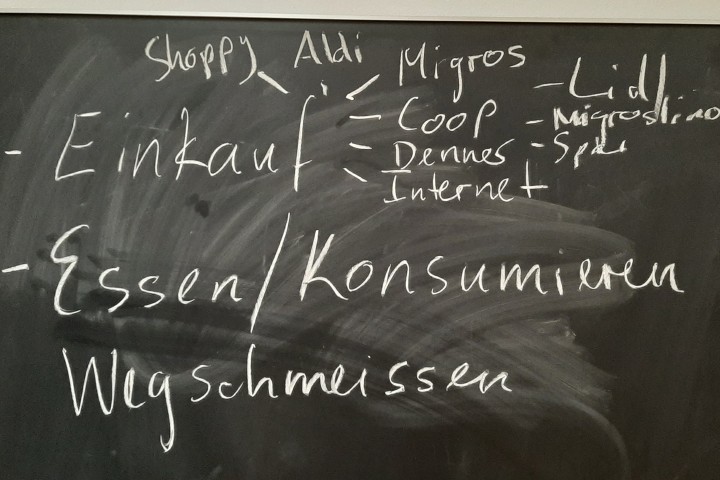 Shoppy Aldi Migros - Lidl
- Einkauf - Coop - Migrolino
- Dennes - Spar
Internet
- Essen/Konsumieren
Wegschmeissen